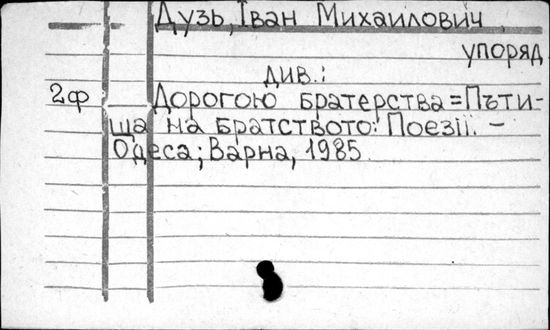 Дузь, Іван Михайлович
упоряд
див.:
2ф Дорогою братерства = Пъти-
ща на братството: Поезії. –
Одеса; Варна, 1985